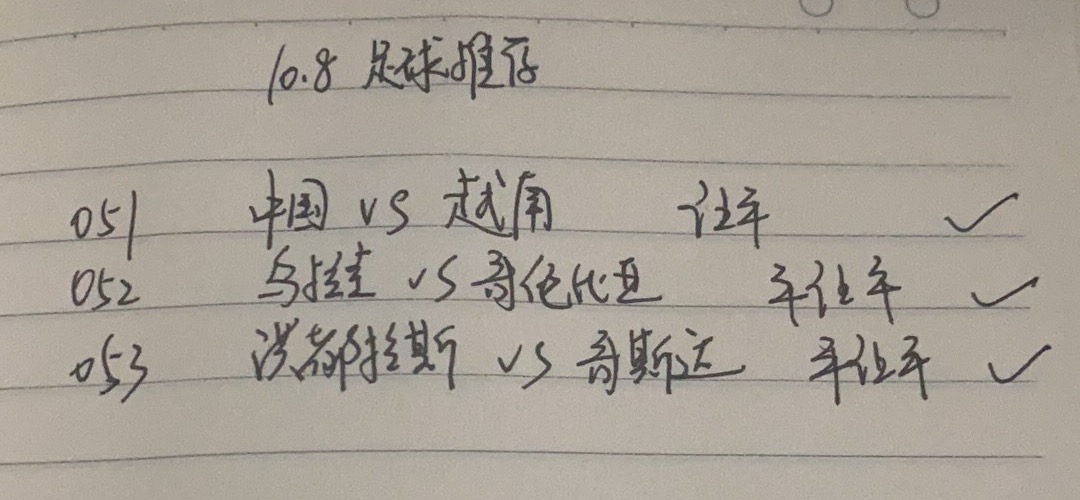 10.8 足球推荐
051 中国 VS 越南 让平 ✓
052 乌拉圭 VS 哥伦比亚 平让平 ✓
053 洪都拉斯 VS 哥斯达 平让平 ✓